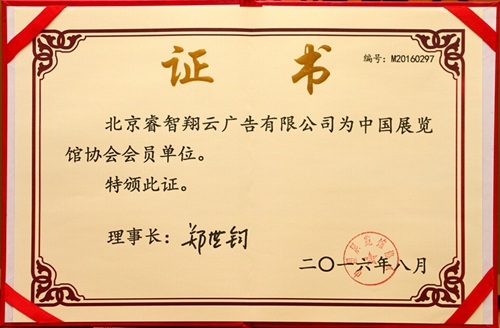 证书
编号：M20160297
北京睿智翔云广告有限公司为中国展览
馆协会会员单位。
特颁此证。
理事长：郑世钧
二〇一六年八月